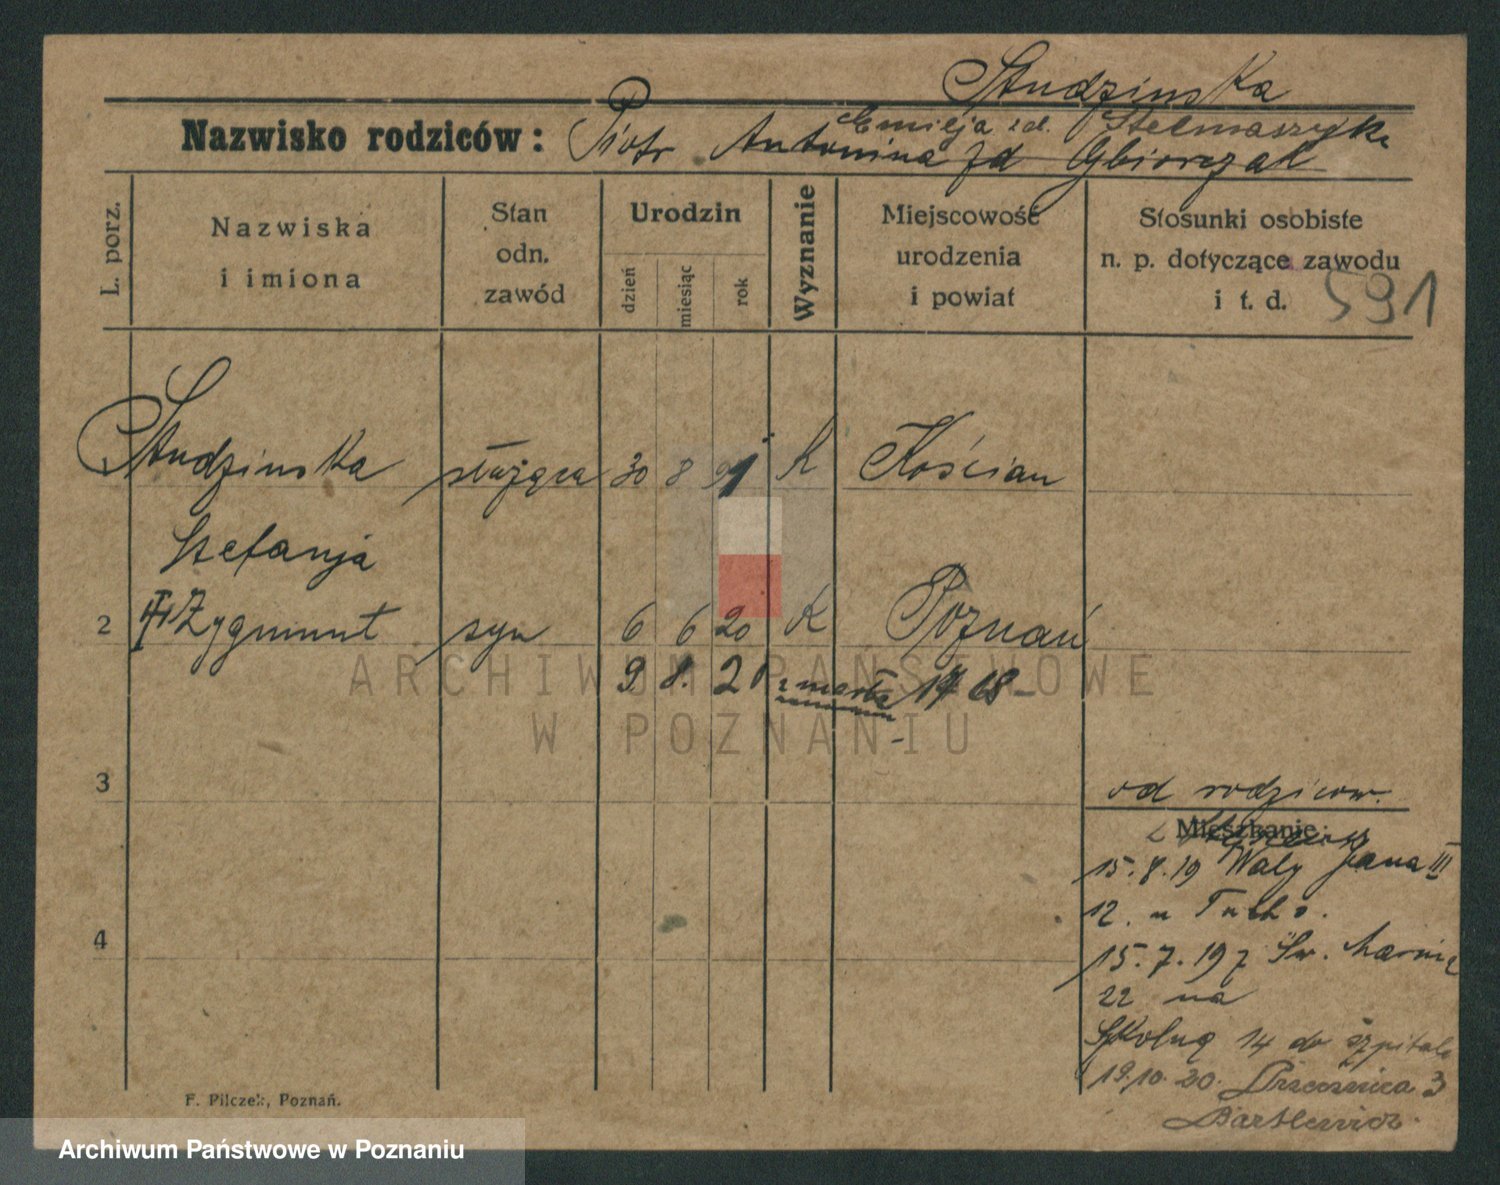 Studzinska
Emilja zd. Stelmaszyk
Nazwisko rodziców: Piotr Antonina zd Gbiorczak
L. porz.
Nazwiska i imiona
Stan odn. zawód
Urodzin
dzień miesiąc rok
Wyznanie
Miejscowość urodzenia i powiat
Stosunki osobiste n. p. dotyczące zawodu i t. d.
591
Studzinska służąca 30 8 91 K Kościan
Stefanja
2 Zygmunt syn 6 6 20 K Poznań
9 8. 20 zmarł
ARCHIWUM PAŃSTWOWE
W POZNANIU
3
od rodzicow.
Mieszkanie:
15.8.19 Wały Jana III
12. u
4
15.7.19 z Św. Marcin
22 na
Szkolną 14 do szpitala
19.10.20.
F. Pilczek, Poznań.
Archiwum Państwowe w Poznaniu